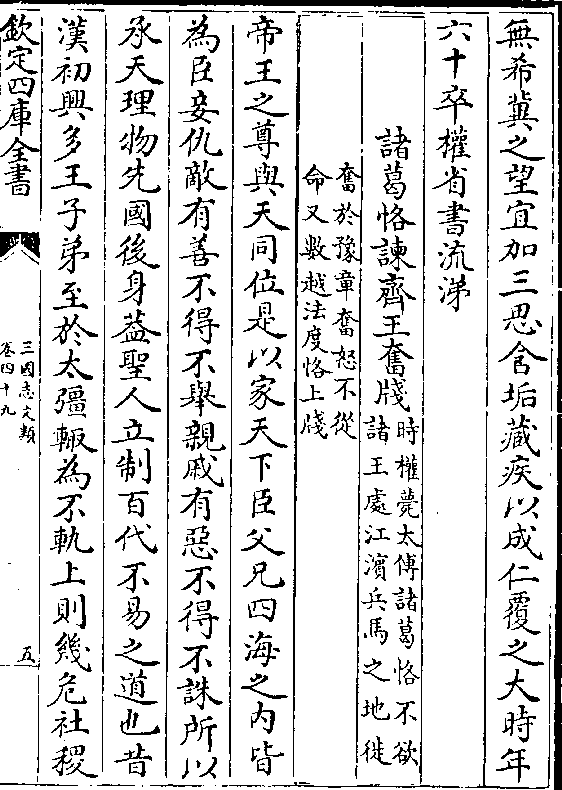 無希冀之望宜加三思含垢藏疾以成仁覆之大時年
六十卒權省書流涕
諸葛恪諫齊王奮牋
時權薨太傅諸葛恪不欲
諸王處江濱兵馬之地徙
奮於豫章奮怒不從
命又數越法度恪上牋
帝王之尊與天同位是以家天下臣父兄四海之内皆
為臣妾仇敵有善不得不舉親戚有惡不得不誅所以
承天理物先國後身葢聖人立制百代不易之道也昔
漢初興多王子弟至於太彊輙為不軌上則幾危社稷
欽定四庫全書
三國志文類
卷四十九
五